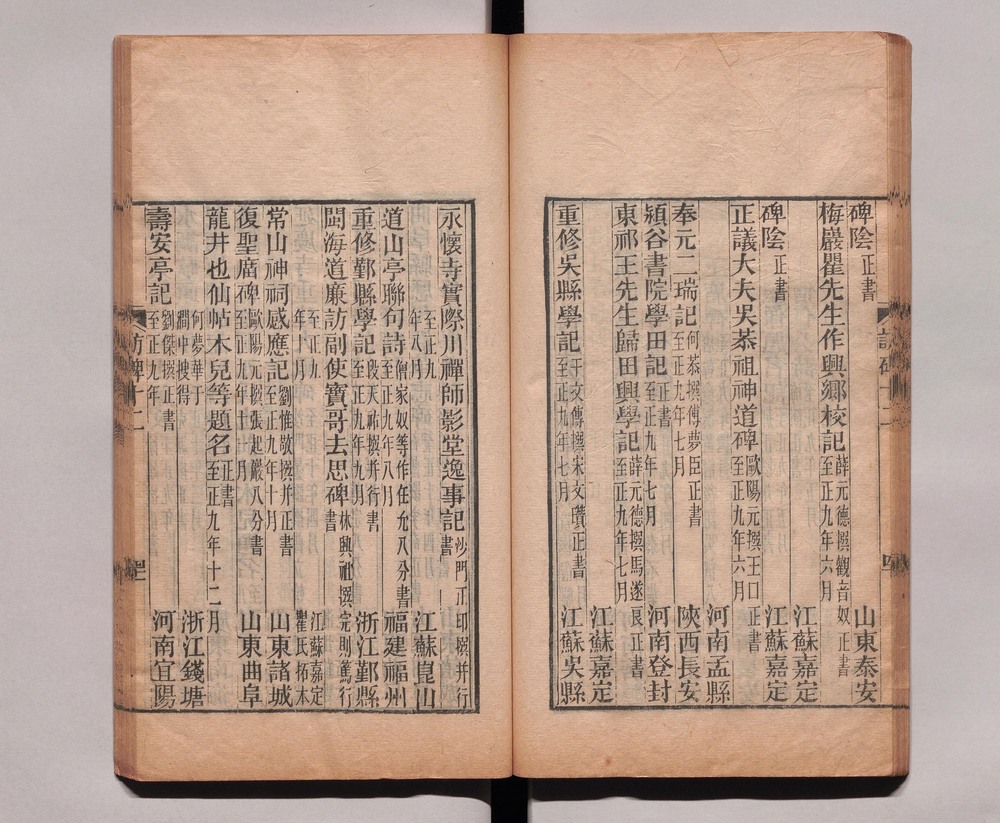 碑陰 正書 山東泰安
梅巖瞿先生作興鄉校記 薛元德撰觀音奴正書 至正九年六月 江蘇嘉定
碑陰 正書 江蘇嘉定
正議大夫吳恭祖神道碑 歐陽元撰王口正書 至正九年六月 河南孟縣
奉元二瑞記 何恭撰傅夢臣正書 至正九年七月 陝西長安
潁谷書院學田記 正書 至正九年七月 河南登封
東祁王先生歸田興學記 薛元德撰馬遂良正書 至正九年七月 江蘇嘉定
重修吳縣學記 干文傳撰宋文瓚正書 至正九年七月 江蘇吳縣
永懷寺實際川禪師影堂逸事記 沙門正印撰并行書 至正九年八月 江蘇崑山
道山亭聯句詩 僧家奴等作任允八分書 至正九年八月 福建福州
重修鄞縣學記 段天祐撰并行書 至正九年九月 浙江鄞縣
閩海道廉訪副使寶哥去思碑 林興祖撰完則篤行書 至正九年十月 江蘇嘉定瞿氏拓本
常山神祠感應記 劉惟敬撰并正書 至正九年十月 山東諸城
復聖廟碑 歐陽元撰張起巖八分書 至正九年十一月 山東曲阜
龍井也仙帖木兒等題名 正書 至正九年十二月 何夢華于澗中搜得 浙江錢塘
壽安亭記 劉傑撰正書 至正九年 河南宜陽
訪碑十二
四